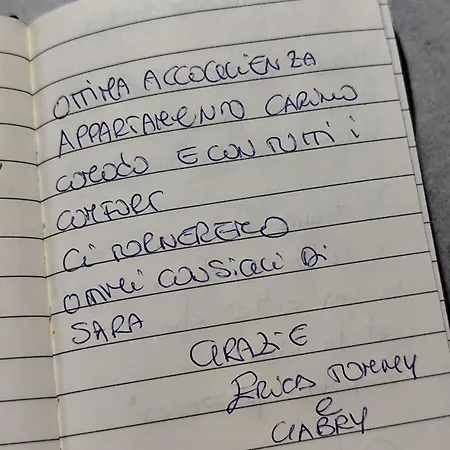 OTTIMA ACCOGLIENZA
APPARTAMENTO CARINO
COMODO E CON TUTTI i
COMFORT
Ci TORNEREMO
OTTIMI CONSIGLI DI
SARA
GRAZIE
ERICA TOMMY
e
GABRY